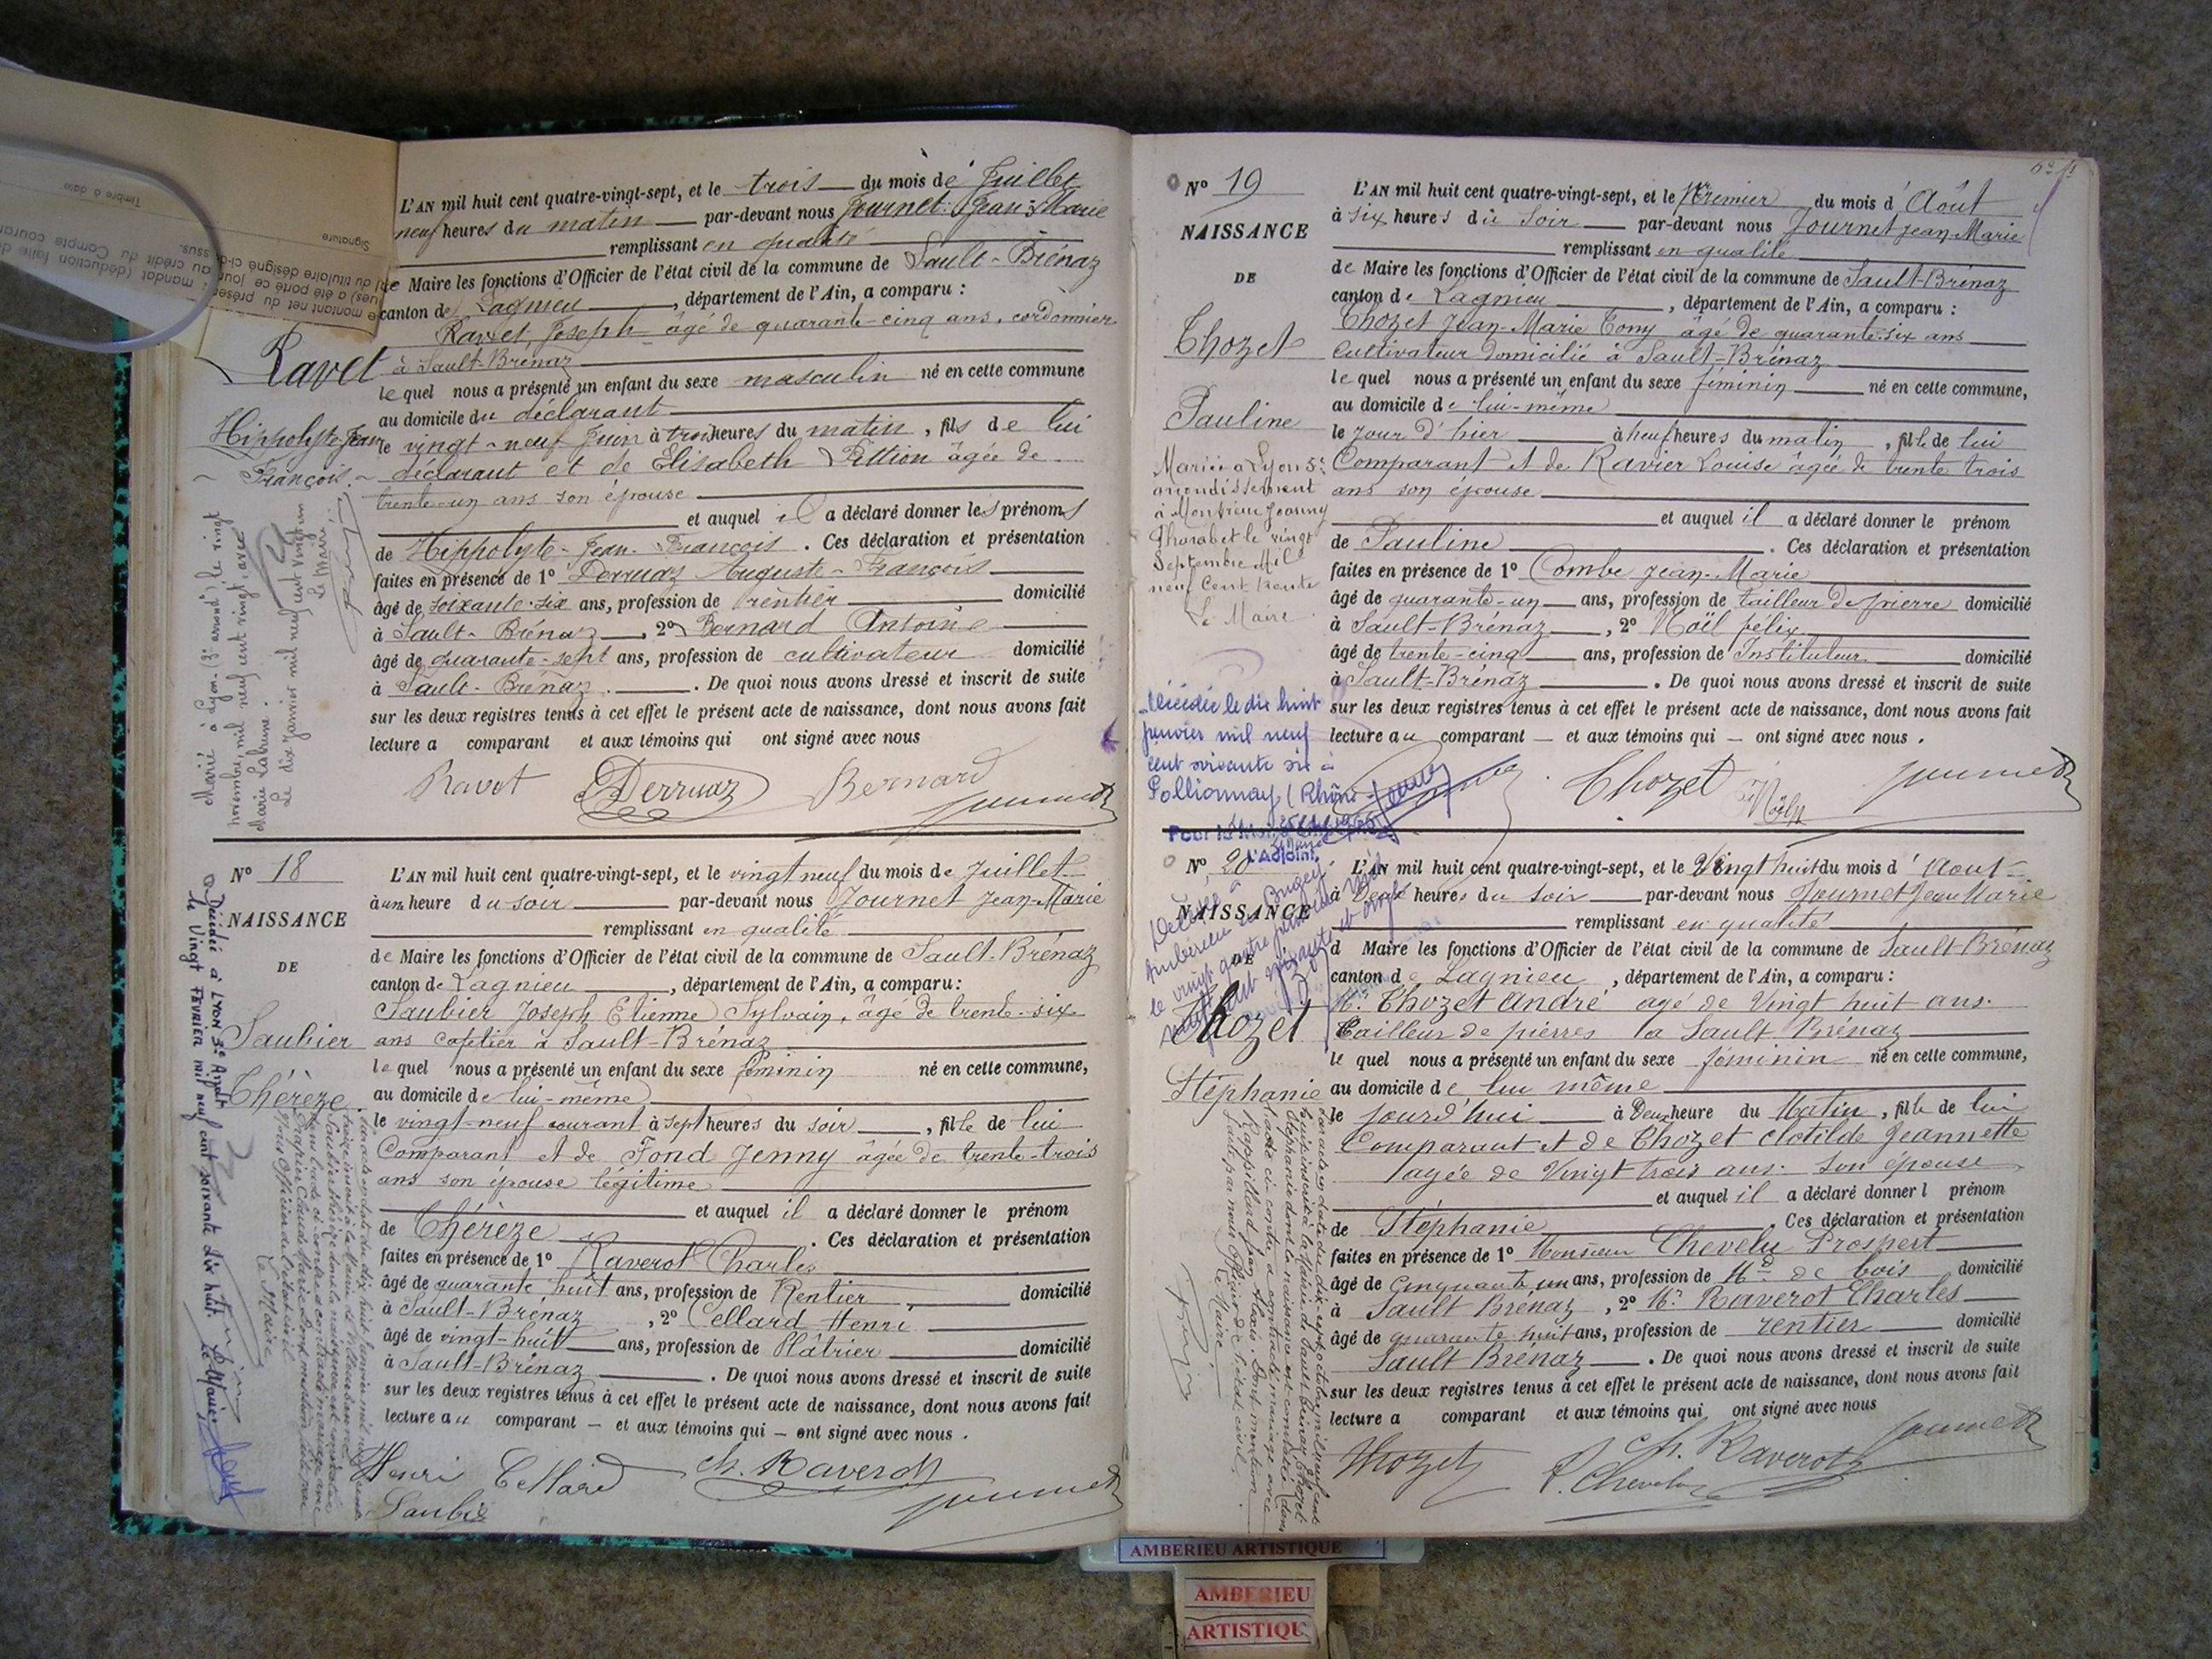 L'AN mil huit cent quatre-vingt-sept, et le trois du mois de Juillet
neuf heures du matin par-devant nous Journet Jean-Marie
remplissant en qualité
de Maire les fonctions d'Officier de l'état civil de la commune de Sault-Brénaz
canton de Lagnieu, département de l'Ain, a comparu :
Ravet, Joseph âgé de quarante-cinq ans, cordonnier
Ravet
à Sault-Brénaz
lequel nous a présenté un enfant du sexe masculin né en cette commune
au domicile du déclarant
Hippolyte Jean
François
le vingt-neuf Juin à trois heures du matin, fils de lui
déclarant et de Elisabeth Pittion âgée de
trente-un ans son épouse
et auquel il a déclaré donner les prénoms
de Hippolyte-Jean-François. Ces déclaration et présentation
faites en présence de 1° Derruaz Auguste-François
âgé de soixante-six ans, profession de rentier domicilié
à Sault-Brénaz, 2° Bernard Antoine
âgé de quarante-sept ans, profession de cultivateur domicilié
à Sault-Brénaz. De quoi nous avons dressé et inscrit de suite
sur les deux registres tenus à cet effet le présent acte de naissance, dont nous avons fait
lecture a comparant et aux témoins qui ont signé avec nous
Ravet Derruaz Bernard Journet
Marié à Lyon (3e arrondt) le vingt
novembre mil neuf cent vingt, avec
Marie Labrune.
Le dix janvier mil neuf cent vingt un
Le Maire
N° 18
NAISSANCE
DE
Saubier
Thérèze
L'AN mil huit cent quatre-vingt-sept, et le vingt neuf du mois de Juillet
à un heure du soir par-devant nous Journet Jean-Marie
remplissant en qualité
de Maire les fonctions d'Officier de l'état civil de la commune de Sault-Brénaz
canton de Lagnieu, département de l'Ain, a comparu :
Saubier Joseph Etienne Sylvain, âgé de trente-six
ans cafetier à Sault-Brénaz
lequel nous a présenté un enfant du sexe féminin né en cette commune,
au domicile de lui-même
le vingt-neuf courant à sept heures du soir, fille de lui
Comparant et de Fond Jenny âgée de trente-trois
ans son épouse légitime
et auquel il a déclaré donner le prénom
de Thérèze. Ces déclaration et présentation
faites en présence de 1° Raverot Charles
âgé de quarante huit ans, profession de Rentier domicilié
à Sault-Brénaz, 2° Cellard Henri
âgé de vingt-huit ans, profession de Plâtrier domicilié
à Sault-Brénaz. De quoi nous avons dressé et inscrit de suite
sur les deux registres tenus à cet effet le présent acte de naissance, dont nous avons fait
lecture au comparant — et aux témoins qui — ont signé avec nous.
Henri Cellard Ch. Raverot
Saubié Journet
Décédée à LYON 3e Arrdt
le Vingt FÉVRIER mil neuf cent soixante dix huit. Le Maire
N° 19
NAISSANCE
DE
Thozet
Pauline
L'AN mil huit cent quatre-vingt-sept, et le Premier du mois d'Août
à six heures du soir par-devant nous Journet Jean-Marie
remplissant en qualité
de Maire les fonctions d'Officier de l'état civil de la commune de Sault-Brénaz
canton de Lagnieu, département de l'Ain, a comparu :
Thozet Jean-Marie Tony âgé de quarante-six ans
Cultivateur domicilié à Sault-Brénaz
lequel nous a présenté un enfant du sexe féminin né en cette commune,
au domicile de lui-même
le jour d'hier à neuf heures du matin, fille de lui
Comparant et de Ravier Louise âgée de trente trois
ans son épouse
et auquel il a déclaré donner le prénom
de Pauline. Ces déclaration et présentation
faites en présence de 1° Combe Jean-Marie
âgé de quarante-un ans, profession de tailleur de pierre domicilié
à Sault-Brénaz, 2° Noël félix
âgé de trente-cinq ans, profession de Instituteur domicilié
à Sault-Brénaz. De quoi nous avons dressé et inscrit de suite
sur les deux registres tenus à cet effet le présent acte de naissance, dont nous avons fait
lecture au comparant — et aux témoins qui — ont signé avec nous.
Thozet Noël Journet
Mariée à Lyon 5e
arrondissement
à Monsieur Joanny
le vingt
Septembre Mil
neuf Cent trente
Le Maire
Décédée le dix huit
janvier mil neuf
cent soixante six à
Pollionnay (Rhône)
L'Adjoint
N° 20
NAISSANCE
DE
Thozet
Stéphanie
Décédée à
Ambérieu en Bugey
le vingt quatre janvier mil
neuf cent soixante et onze
L'AN mil huit cent quatre-vingt-sept, et le Vingt huit du mois d'Aout
à Deux heures du soir par-devant nous Journet Jean Marie
remplissant en qualité
d Maire les fonctions d'Officier de l'état civil de la commune de Sault-Brénaz
canton de Lagnieu, département de l'Ain, a comparu :
Mr Thozet André agé de Vingt huit ans.
Tailleur de pierres a Sault Brénaz
le quel nous a présenté un enfant du sexe féminin né en cette commune,
au domicile de lui même
le jourd'hui à Deux heure du Matin, fille de lui
Comparant et de Thozet Clotilde Jeannette
agée de Vingt trois ans. Son épouse
et auquel il a déclaré donner l prénom
de Stéphanie Ces déclaration et présentation
faites en présence de 1° Monsieur Chevelu Prospert
âgé de Cinquante un ans, profession de Md de bois domicilié
à Sault Brénaz, 2° Mr Raverot Charles
âgé de quarante huit ans, profession de rentier domicilié
Sault Brénaz. De quoi nous avons dressé et inscrit de suite
sur les deux registres tenus à cet effet le présent acte de naissance, dont nous avons fait
lecture a comparant et aux témoins qui ont signé avec nous
Thozet P. Chevelu Ch. Raverot Journet
AMBERIEU ARTISTIQUE
AMBERIEU
ARTISTIQU